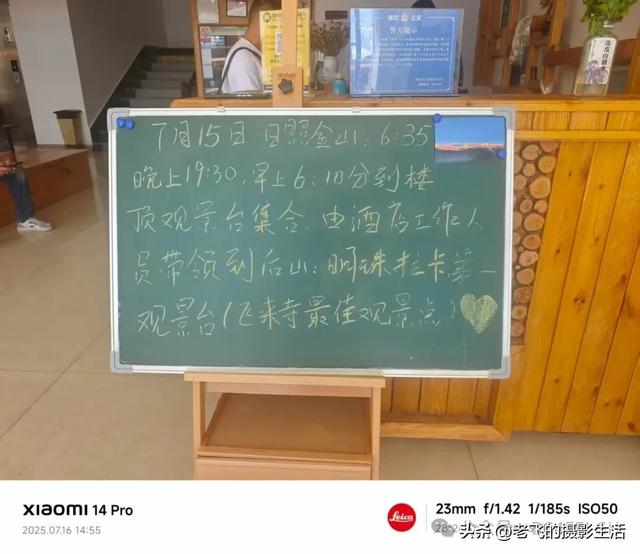 警方提示
7月15日 日照金山:6:35
晚上19:30,早上6:10分到楼
顶观景台集合,由酒店工作人
员带领到后山:明珠拉卡第一
观景台(飞来寺最佳观景点)
XIAOMI 14 Pro
2025.07.16 14:55
Leica
23mm f/1.42 1/185s ISO50
头条 @老飞的摄影生活